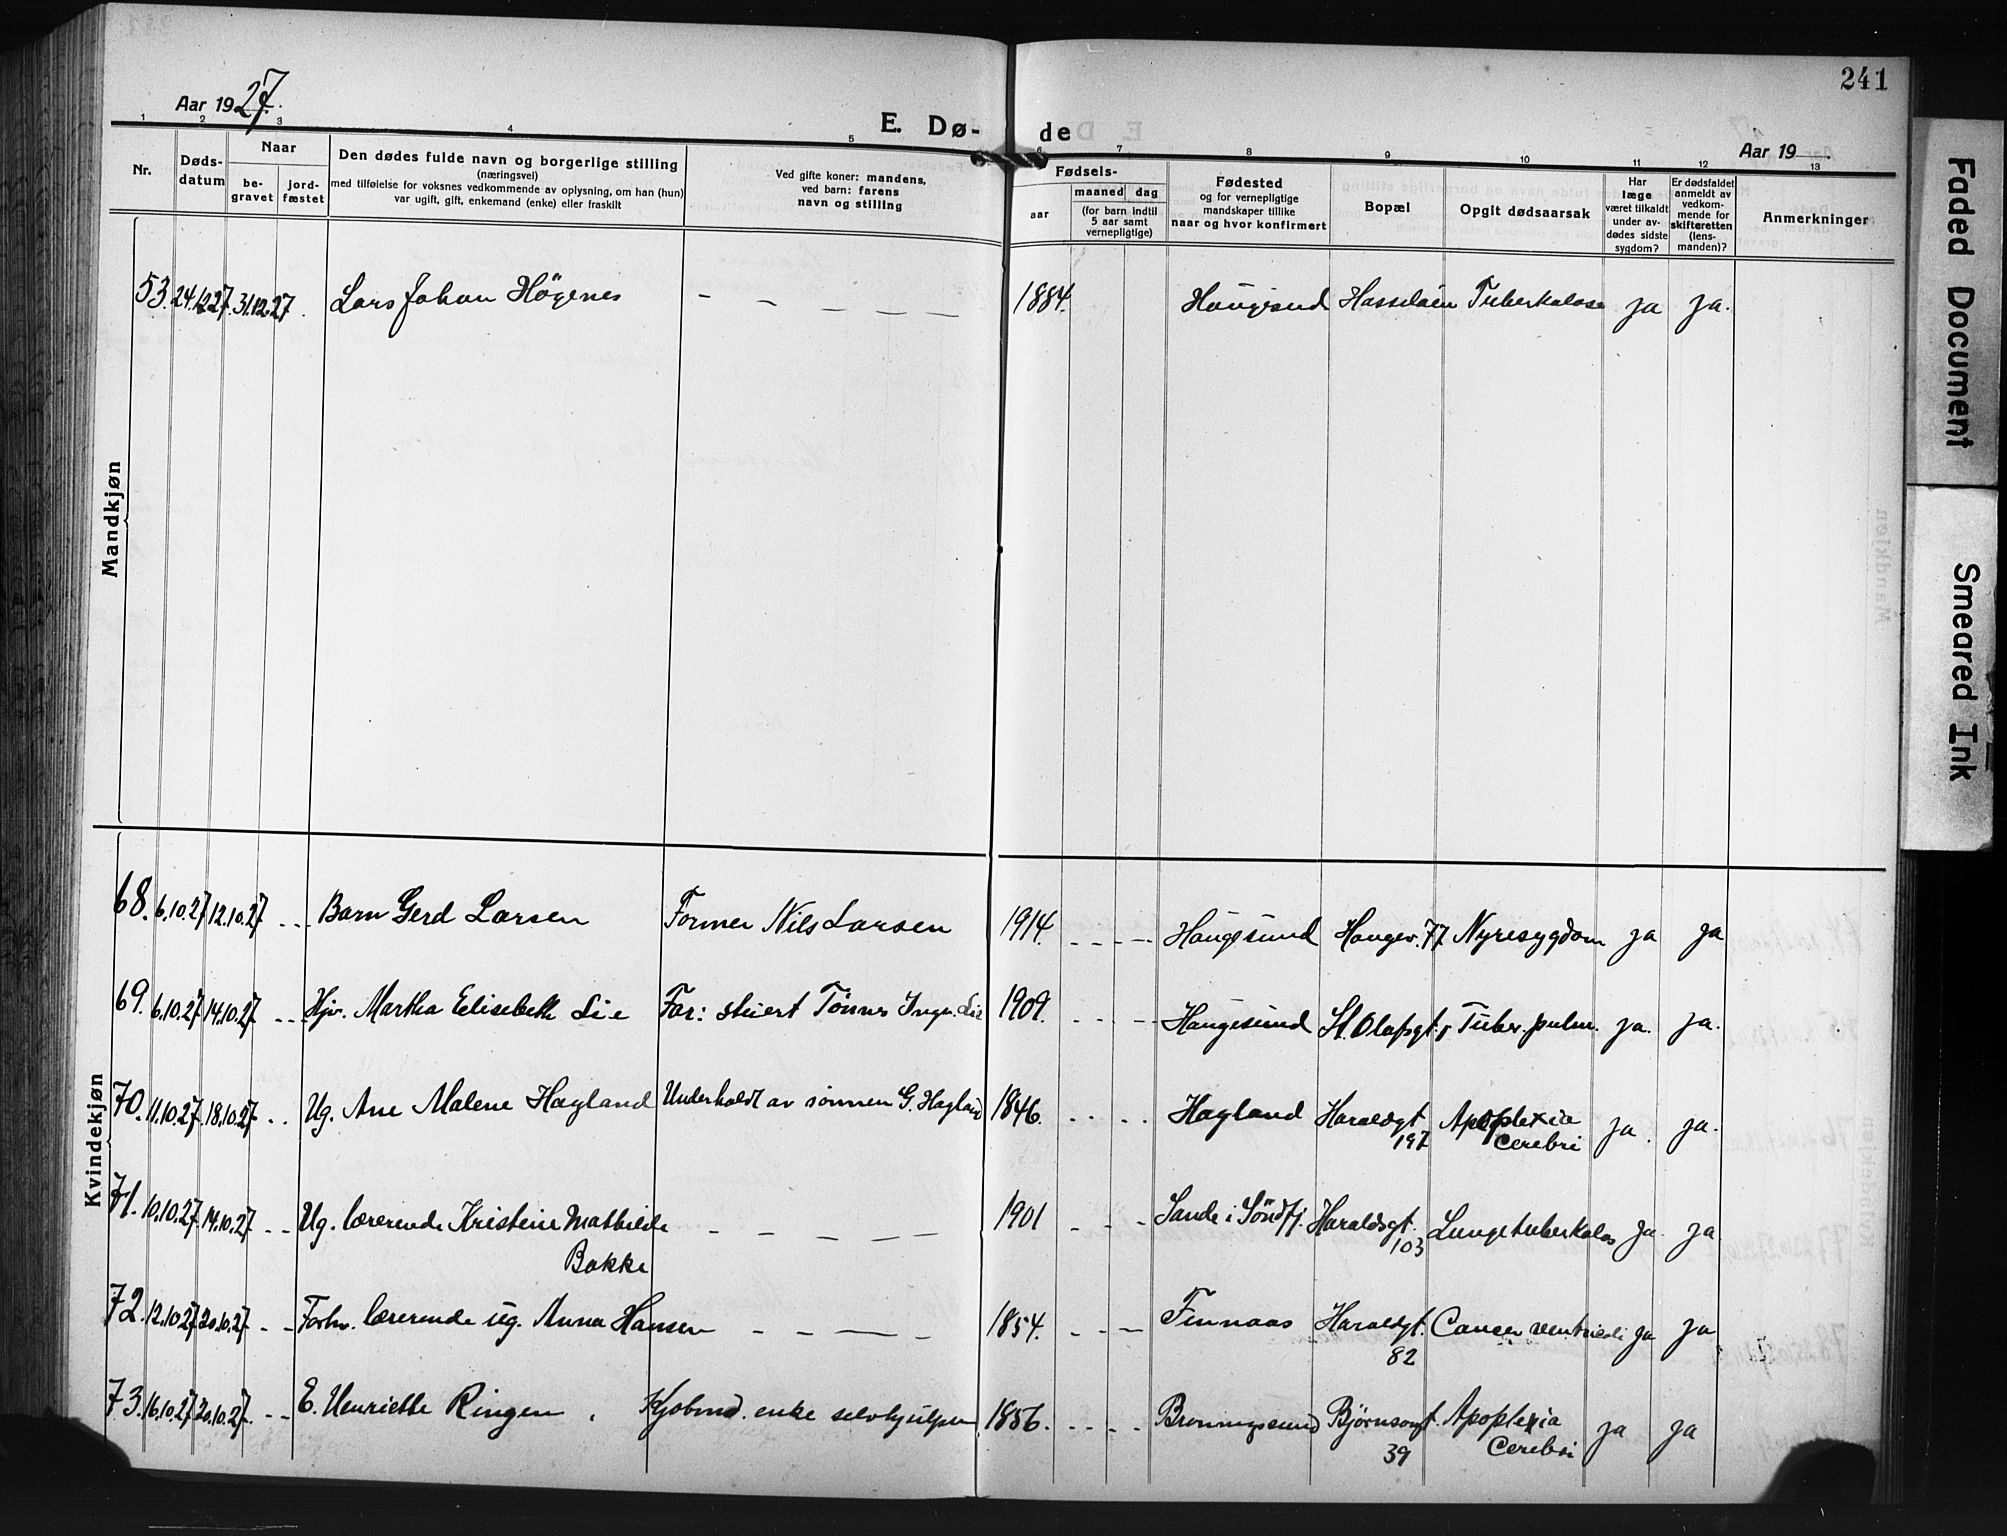 241
Aar 1927.
E. Dø-
de
Aar 19
1 2 3 4 5 6 7 8 9 10 11 12 13
Nr.
Døds-
datum
Naar
be-
gravet
jord-
fæstet
Den dødes fulde navn og borgerlige stilling
(næringsvei)
med tilføielse for voksnes vedkommende av oplysning, om han (hun)
var ugift, gift, enkemand (enke) eller fraskilt
Ved gifte koner: mandens,
ved barn: farens
navn og stilling
Fødsels-
aar
maaned dag
(for barn indtil
5 aar samt
vernepligtige)
Fødested
og for vernepligtige
mandskaper tillike
naar og hvor konfirmert
Bopæl
Opgit dødsaarsak
Har
læge
været tilkaldt
under av-
dødes sidste
sygdom?
Er dødsfaldet
anmeldt av
vedkom-
mende for
skifteretten
(lens-
manden)?
Anmerkninger
Mandkjøn
53. 24.12.27 31.12.27. Lars Johan Högenes - - - - - 1884. Haugesund Hasseløen Tuberkulose ja ja.
Kvindekjøn
68. 6.10.27 12.10.27 - - - Barn Gerd Larsen Former Nils Larsen 1914. - - - - Haugesund Haugev. 77 Nyresygdom ja ja
69. 6.10.27 14.10.27 - - - Hjv. Martha Elisebeth Lie Far: stuert Tönnes Ingv. Lie 1909. - - - - Haugesund St. Olafsgt. Tuber. pulm. ja. ja.
70. 11.10.27. 18.10.27 - - Ug. Ane Malene Hagland Underholdt av sönnen G. Hagland 1846. - - - - Hagland Haraldsgt 197 Apoplexia Cerebri ja. ja.
71. 10.10.27 14.10.27 - - Ug. lærerinde Kristine Mathilde - - - - - 1901 - - - Sande i Söndfj. Haraldsgt. 103 Lungetuberkulos ja. ja.
Bakke
72. 12.10.27 20.10.27 - - Forhv. lærerinde ug. Anna Hansen - - - - 1854. - - - Finnaas Haraldgt. 82 Cancer ventriculi ja ja
73. 16.10.27 20.10.27. - - E. Henriette Ringen. Kjöbmd. enke selvhjulpen 1856. - - - - Bjørnsongt. 39 Apoplexia Cerebri ja ja
Faded Document
Smeared Ink